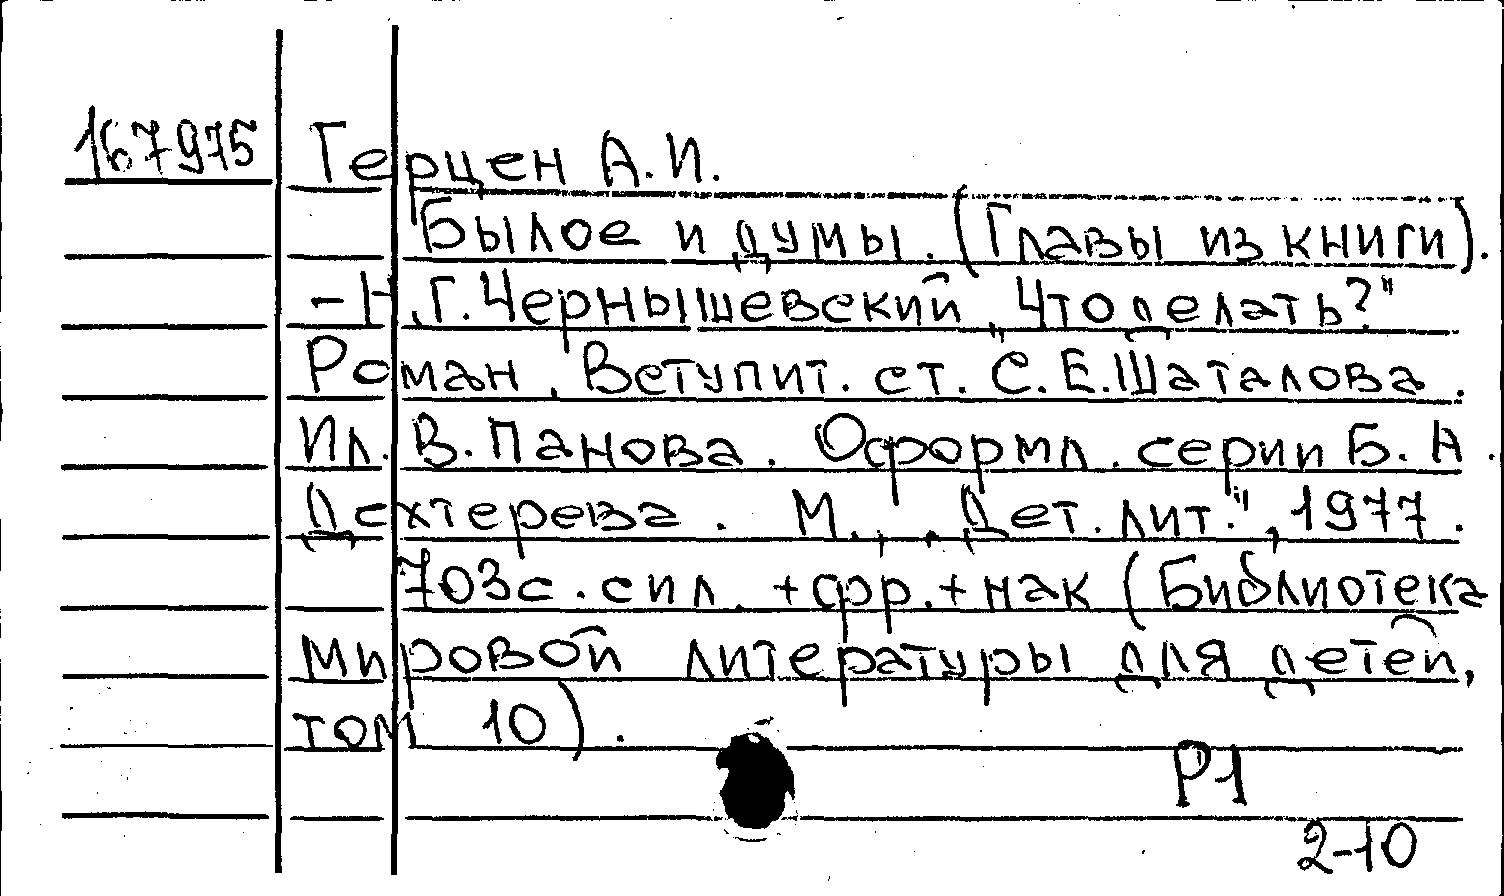 167975 Герцен А.И.
Былое и думы. (Главы из книги).
- Н.Г. Чернышевский „Что делать?"
Роман. Вступит. ст. С.Е. Шаталова.
Ил. В. Панова. Оформл. серии Б. А.
Дехтерева. М., „Дет. лит.", 1977.
703с. с ил. + фр. + нак (Библиотека
мировой литературы для детей,
том 10).
Р1
2-10